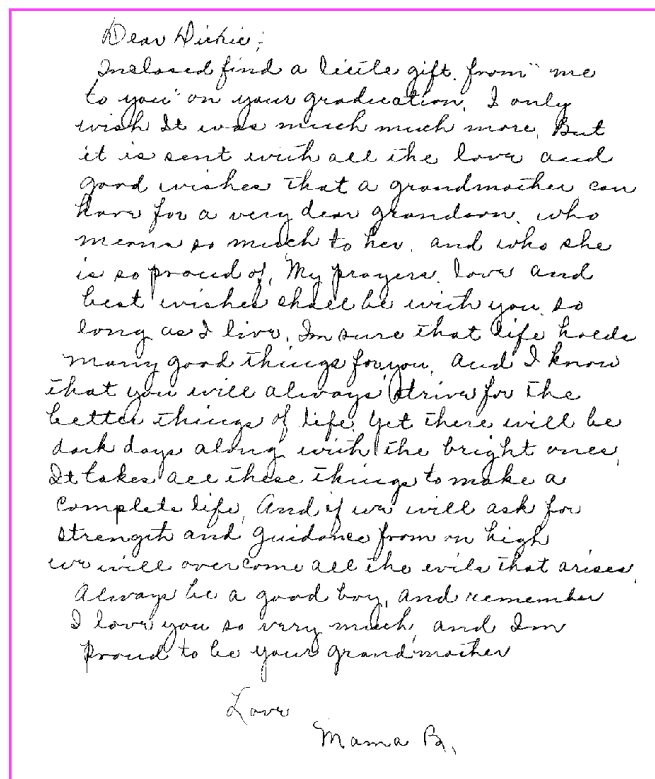 Dear Dickie;
Inclosed find a little gift. from "me
to you" on your graduation. I only
wish It was much much more. But
it is sent with all the love and
good wishes that a grandmother can
have for a very dear grandson. who
means so much to her. and who she
is so proud of. My prayers, love and
best wishes shall be with you. so
long as I live. Im sure that life holds
many good things for you. And I know
that you will always strive for the
better things of life. Yet there will be
dark days along with the bright ones.
It takes all these things to make a
complete life. And if we will ask for
strength and guidance from on high
we will overcome all the evils that arises.
Always be a good boy, and remember
I love you so very much, and Im
proud to be your grandmother
Love
Mama B.